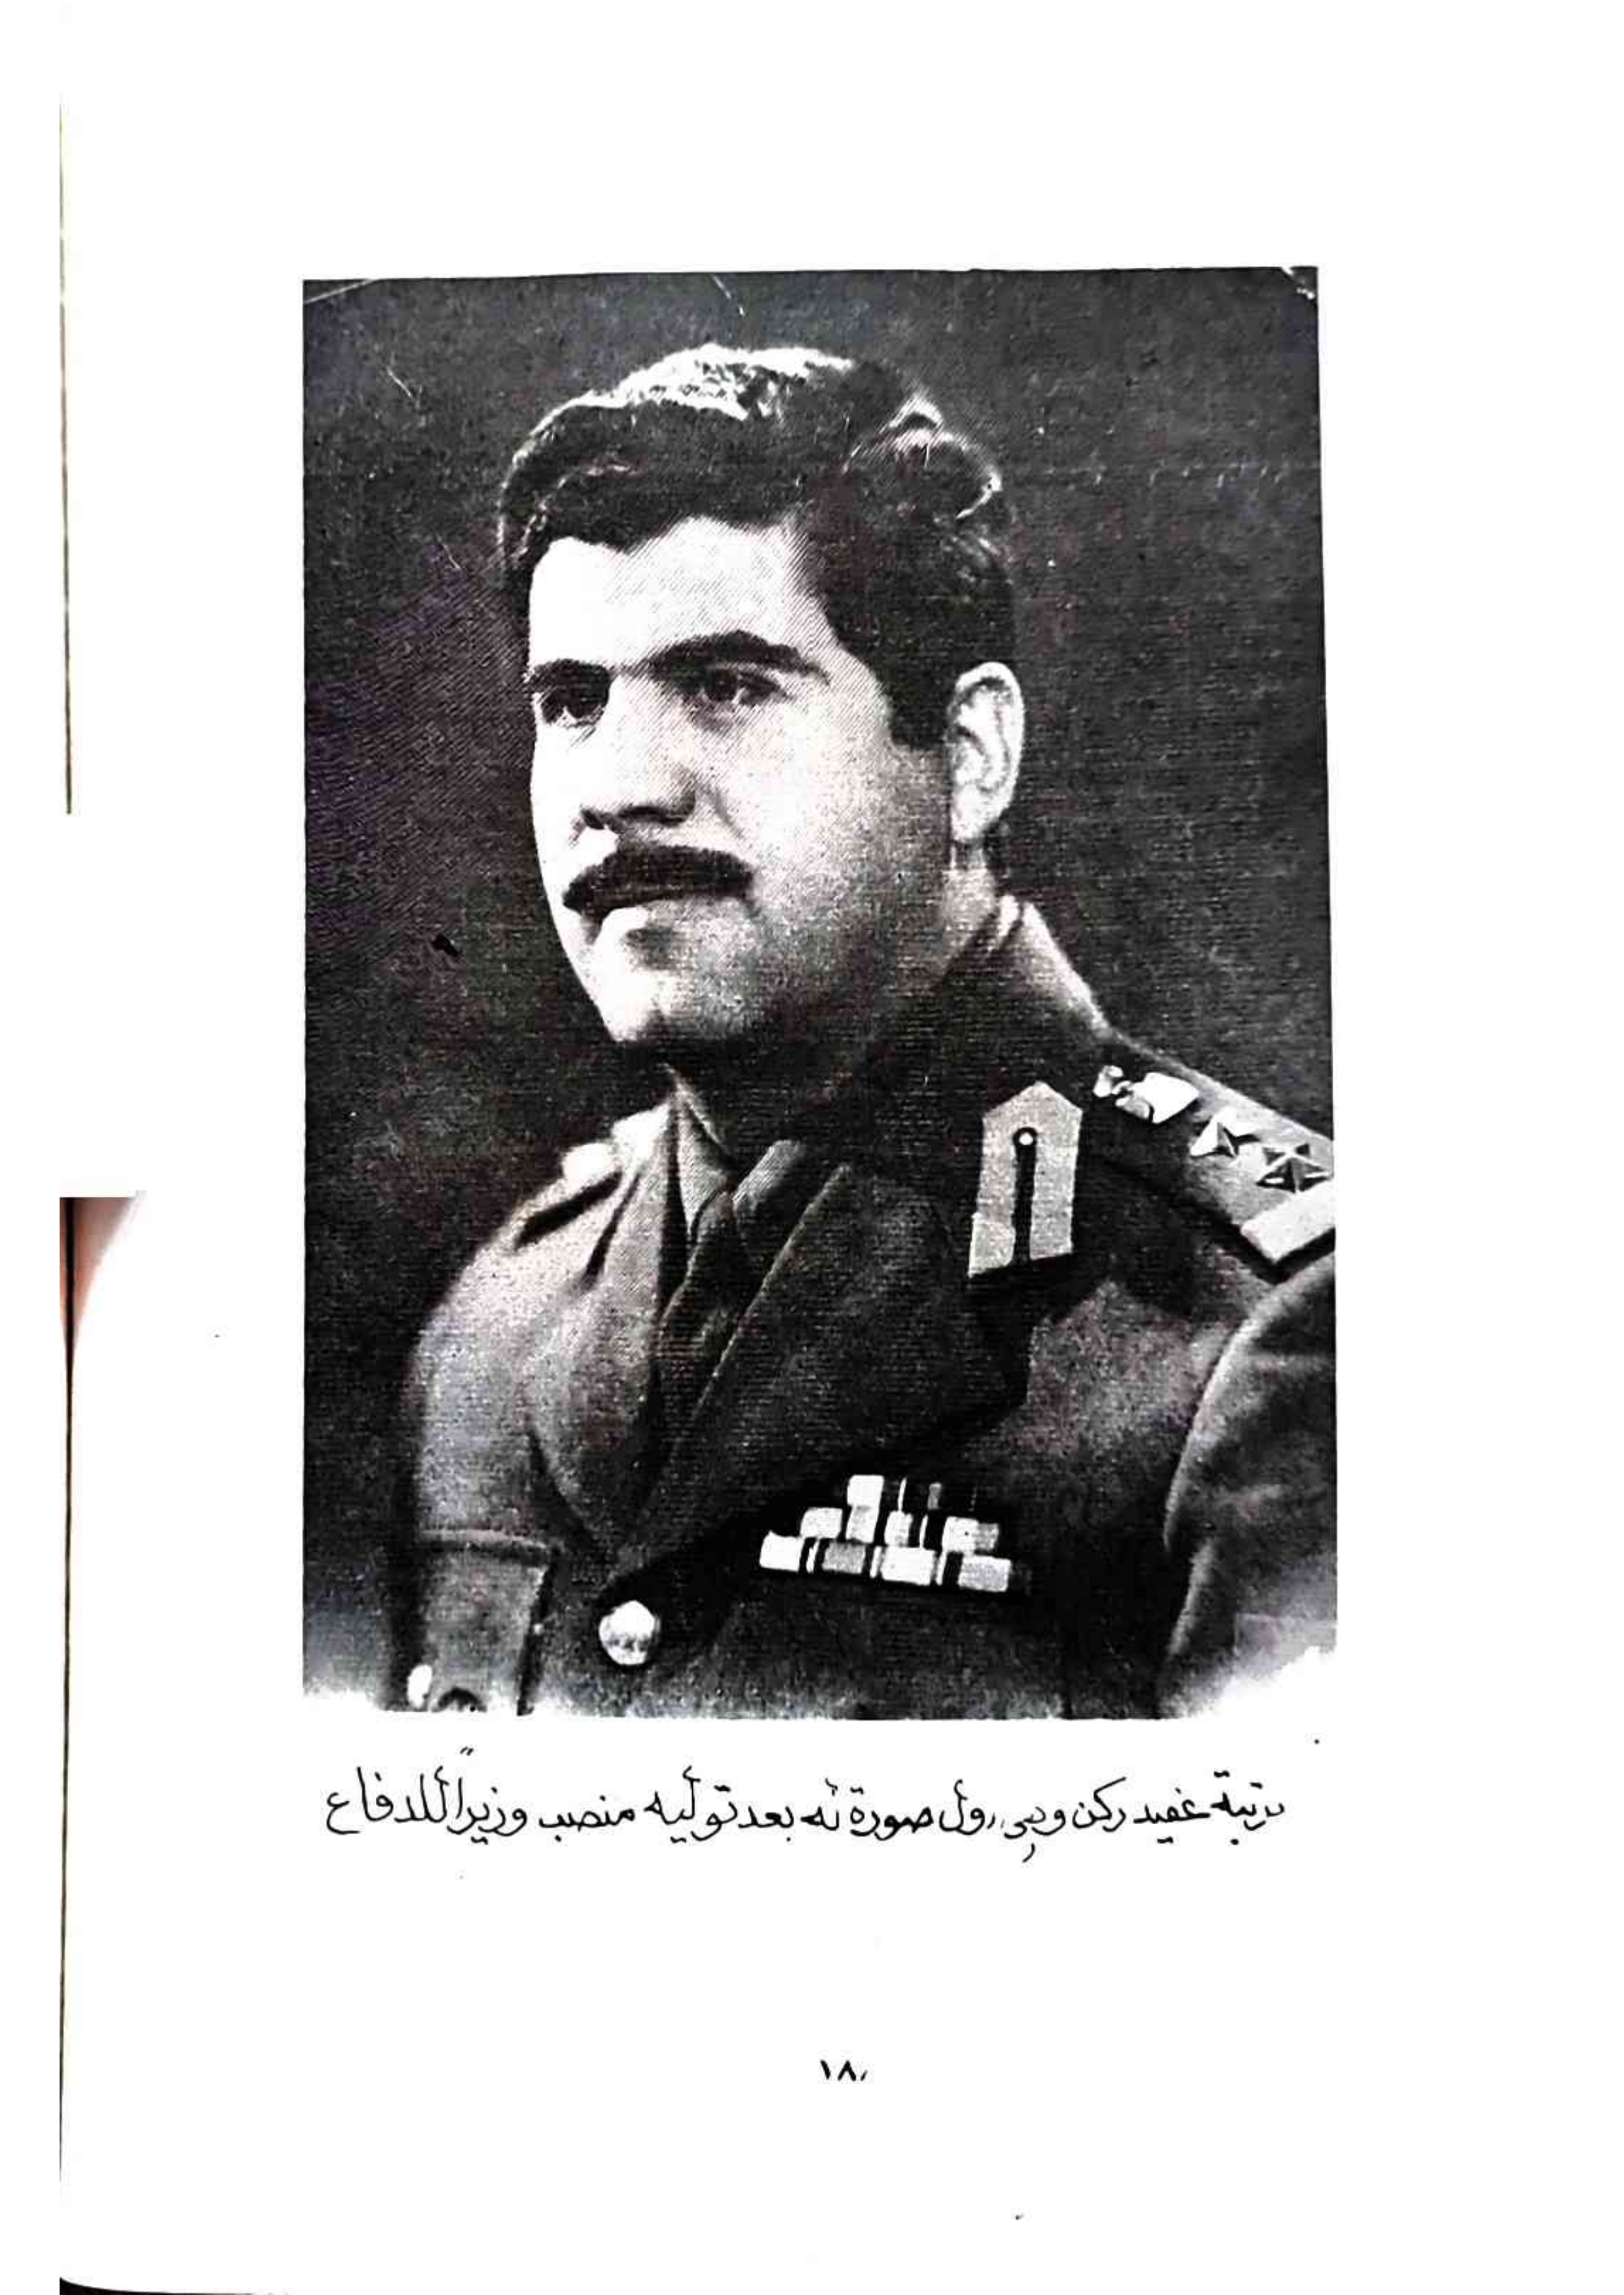 برتبة عقيد ركن وهي أول صورة له بعد توليه منصب وزيراً للدفاع
١٨٠